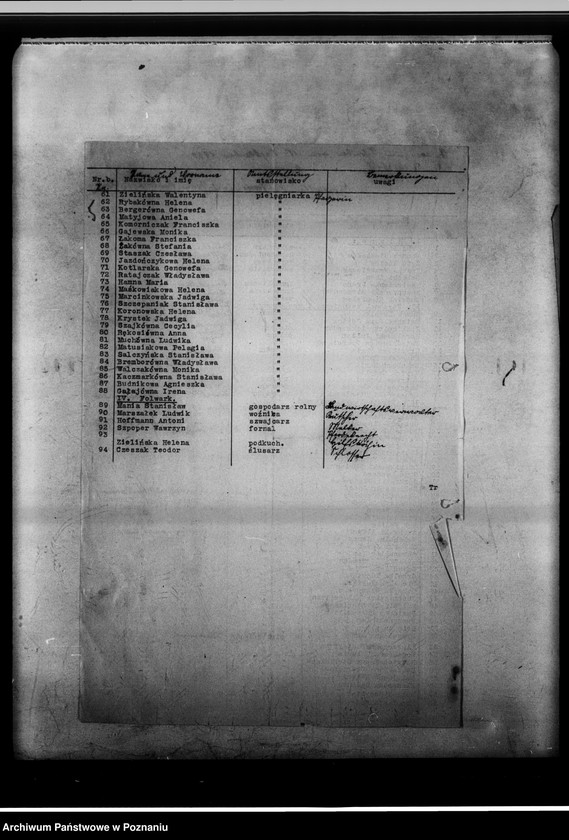 Nr.b. Nazwisko i imię stanowisko uwagi
61 Zielińska Walentyna pielęgniarka
62 Rybakówna Helena "
63 Bergerówna Genowefa "
64 Matyjowa Aniela "
65 Komorniczak Franciszka "
66 Gajewska Monika "
67 Łakoma Franciszka "
68 Żakówna Stefania "
69 Staszak Czesława "
70 Jazdończykowa Helena "
71 Kotlarska Genowefa "
72 Ratajczak Władysława "
73 Hanna Maria "
74 Maćkowiakowa Helena "
75 Marcinkowska Jadwiga "
76 Szczepaniak Stanisława "
77 Koronowska Helena "
78 Krystek Jadwiga "
79 Szajkówna Cecylia "
80 Rękosiówna Anna "
81 Muchówna Ludwika "
82 Matusiakowa Pelagia "
83 Salczyńska Stanisława "
84 Bremborówna Władysława "
85 Walczakówna Monika "
86 Kaczmarkówna Stanisława "
87 Budnikowa Agnieszka "
88 Gałajówna Irena "
IV. Folwark.
89 Mania Stanisław gospodarz rolny
90 Marszałek Ludwik woźnica Kutscher
91 Hoffmann Antoni szwajcarz
92 Szpoper Wawrzyn fornal
93
Zielińska Helena podkuch.
94 Czeszak Teodor ślusarz Schlosser
Tr
Archiwum Państwowe w Poznaniu